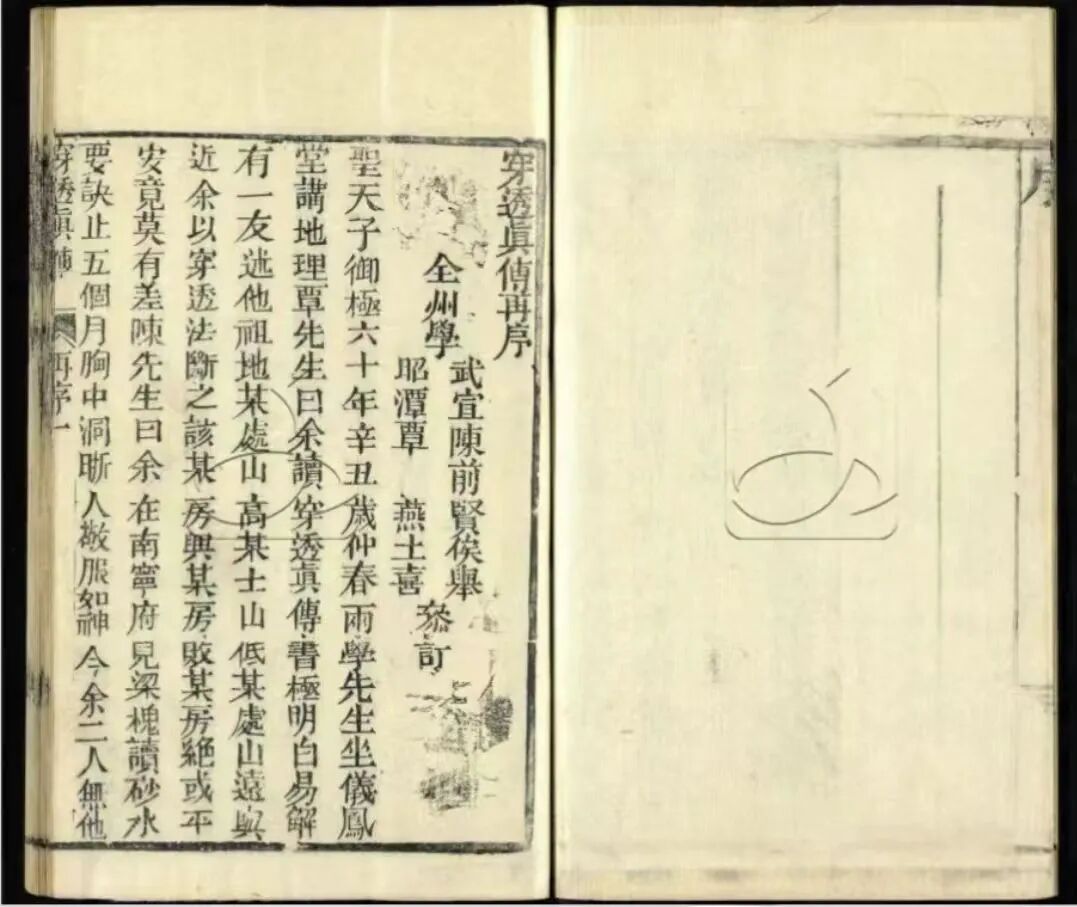 穿透眞傳再序
全州學
武宣陳前賢俟舉
昭潭覃　燕士喜
叅訂
聖天子御極六十年辛丑歲仲春兩學先生坐儀鳳
堂講地理覃先生曰余讀穿透眞傳書極明白易解
有一友述他祖地某處山高某士山低某處山遠與
近余以穿透法斷之該某房興某房敗某房絕或平
安竟莫有差陳先生曰余在南寧府見梁槐讀砂水
要訣止五個月胸中洞晰人敬服如神今余二人無他
穿透眞傳　再序一
序